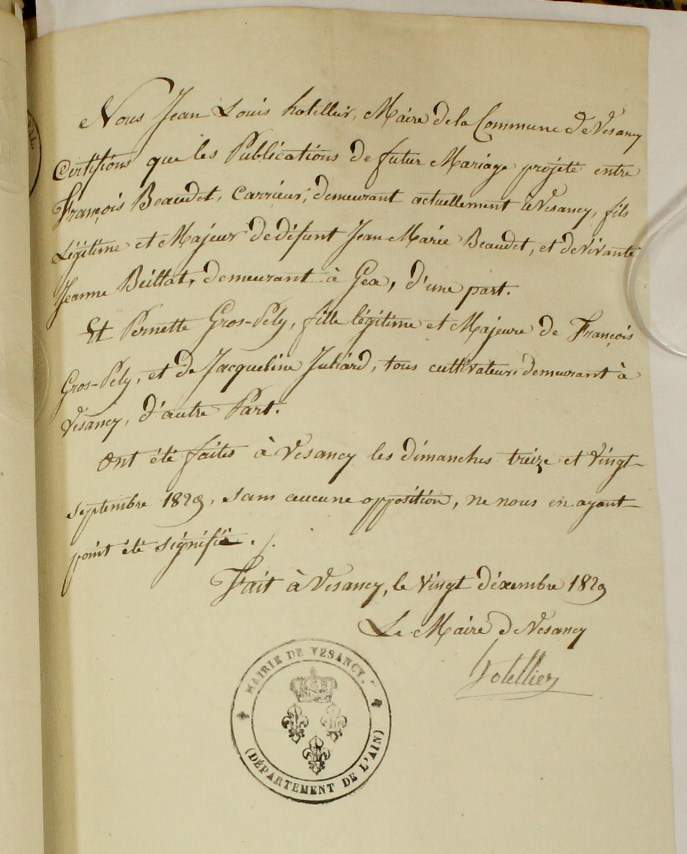 Nous Jean Louis hotellier, Maire de la Commune de Vesancy
Certifions que les Publications de futur Mariage projété entre
François Beaudet, Carrieur, demeurant actuellement à Vesancy, fils
Légitime et Majeur de défunt Jean Marie Beaudet, et de vivante
Jeanne Beillat, demeurant à Gex, d'une part.
Et Pernette Gros-Pely, fille légitime et Majeure de François
Gros-Pely, et de Jacqueline Juliard, tous cultivateurs demeurant à
Vesancy, d'autre Part.
Ont été faites à Vesancy les dimanches treize et vingt
septembre 1829, sans aucune opposition, ne nous en ayant
point été signifié ./.
Fait à Vesancy, le vingt décembre 1829
Le Maire de Vesancy
hotellier
MAIRIE DE VESANCY.
(DÉPARTEMENT DE L'AIN)